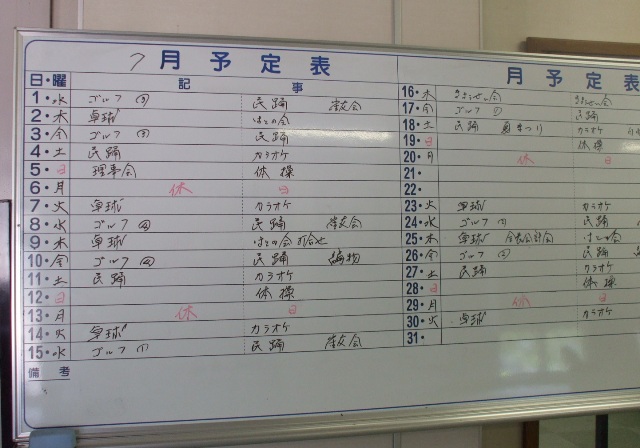 7 月 予 定 表
日・曜 記 事
1・水 ゴルフ 民踊
2・木 卓球 はとの会
3・今 ゴルフ 民踊
4・土 民踊 カラオケ
5・日 理事会 体操
6・月 休 日
7・火 卓球 カラオケ
8・水 ゴルフ 民踊
9・木 卓球 はとの会
10・今 ゴルフ 民踊 編物
11・土 民踊 カラオケ
12・日 体操
13・月 休 日
14・火 卓球 カラオケ
15・水 ゴルフ 民踊
備 考
月 予 定 表
16・木
17・今 ゴルフ 民踊
18・土 民踊 カラオケ
19・日 体操
20・月 休 日
21・
22・
23・火 卓球 カラオケ
24・水 ゴルフ 民踊
25・木 卓球 はとの会
26・今 ゴルフ 民踊
27・土 民踊 カラオケ
28・日 体操
29・月 休 日
30・火 卓球 カラオケ
31・